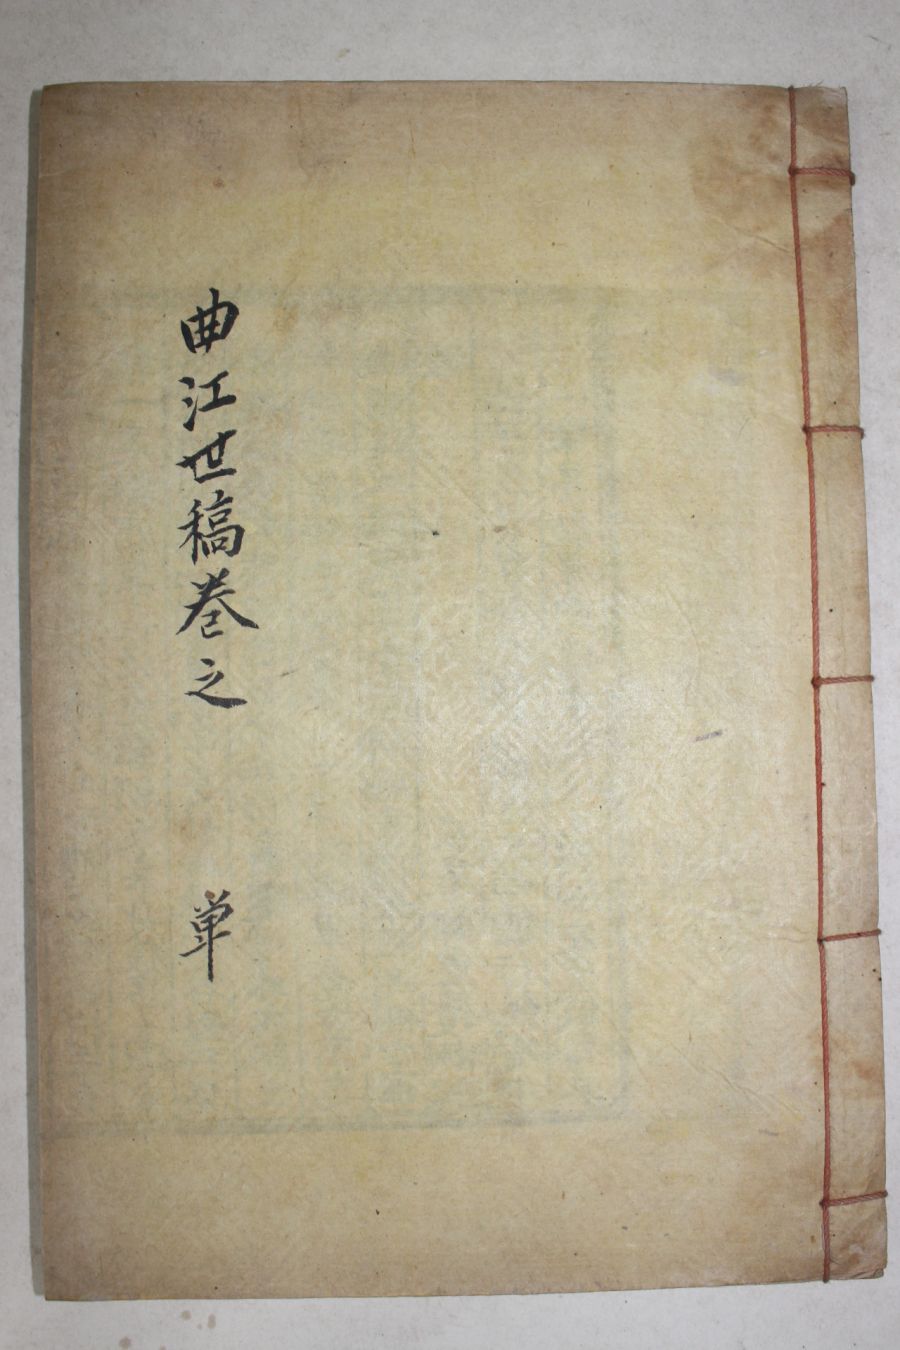 曲江世稿卷之 单